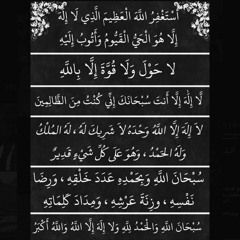 أَسْتَغْفِرُ اللَّهَ الْعَظِيمَ الَّذِي لَا إِلَهَ
إِلَّا هُوَ الْحَيُّ الْقَيُّومُ وَأَتُوبُ إِلَيْهِ
لَا حَوْلَ وَلَا قُوَّةَ إِلَّا بِاللَّهِ
لَّا إِلَٰهَ إِلَّا أَنتَ سُبْحَانَكَ إِنِّي كُنتُ مِنَ الظَّالِمِينَ
لَا إِلَهَ إِلَّا اللَّهُ وَحْدَهُ لَا شَرِيكَ لَهُ، لَهُ الْمُلْكُ
وَلَهُ الْحَمْدُ، وَهُوَ عَلَى كُلِّ شَيْءٍ قَدِيرٌ
سُبْحَانَ اللَّهِ وَبِحَمْدِهِ عَدَدَ خَلْقِهِ، وَرِضَا
نَفْسِهِ، وَزِنَةَ عَرْشِهِ، وَمِدَادَ كَلِمَاتِهِ
سُبْحَانَ اللَّهِ وَالْحَمْدُ لِلَّهِ وَلَا إِلَهَ إِلَّا اللَّهُ وَاللَّهُ أَكْبَرُ